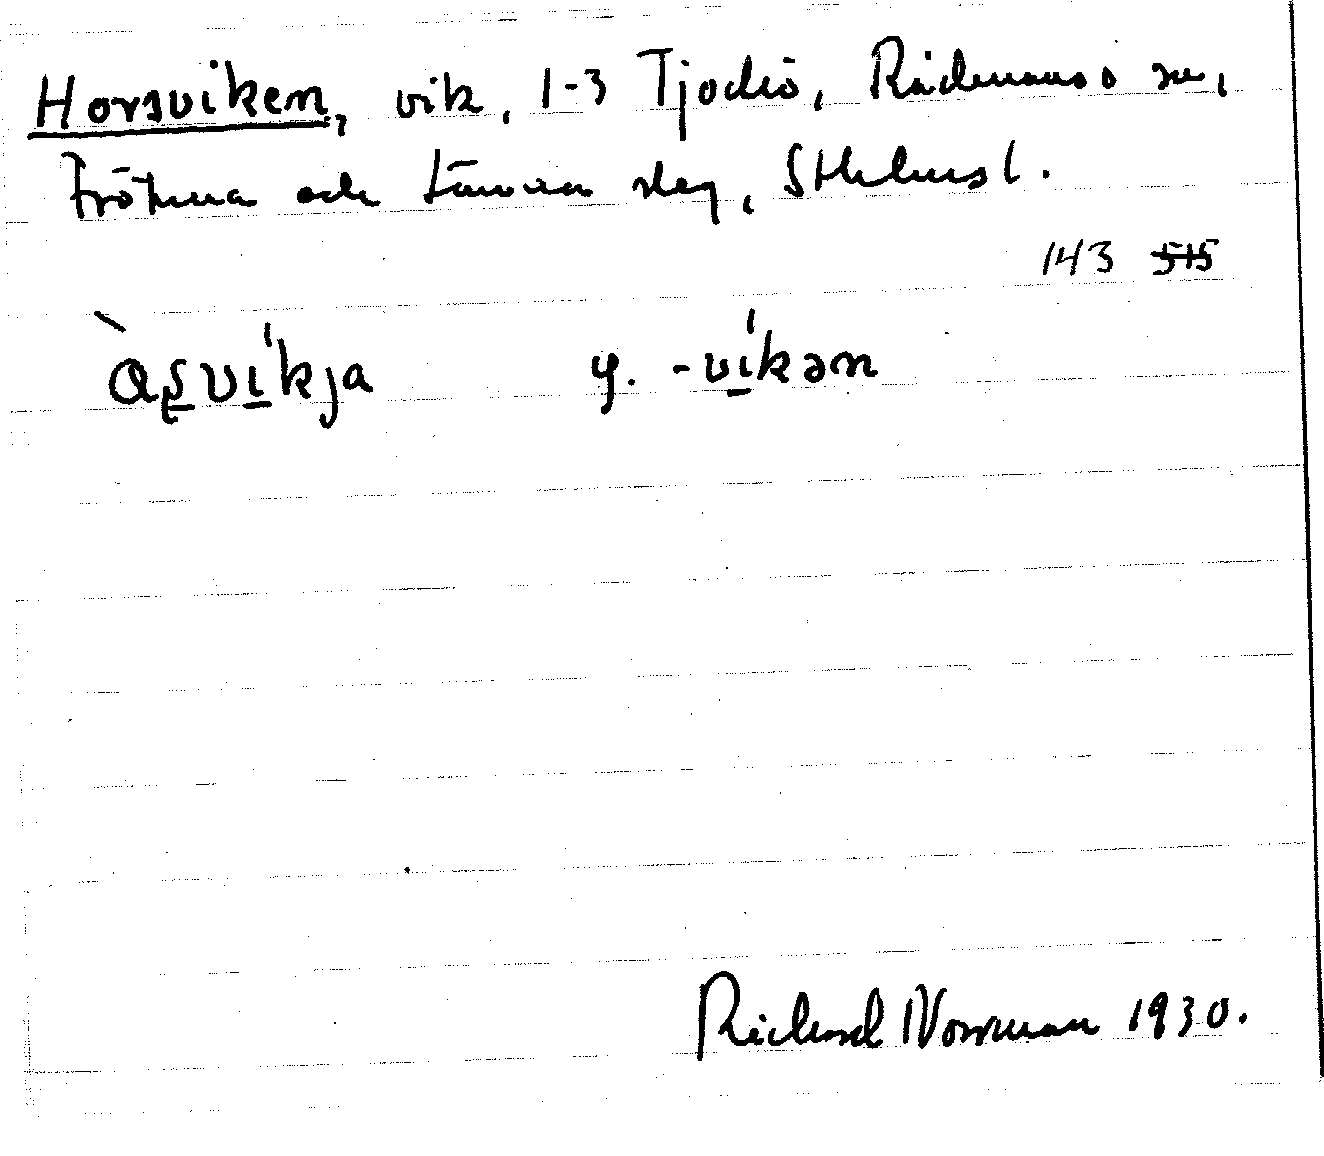 Horsviken, vik, 1-3 Tjockö, Rådmansö sn,
Frötuna och Länna slag, Sthlms l.
143 515
àʂvíkja y. -víkən
Richard Norrman 1930.